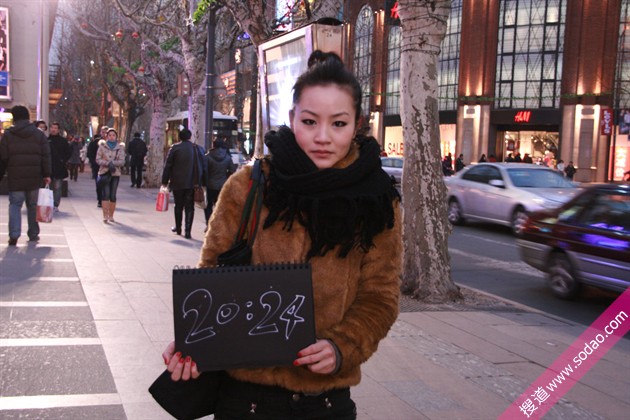 H&M
20:24
搜道 www.sodao.com